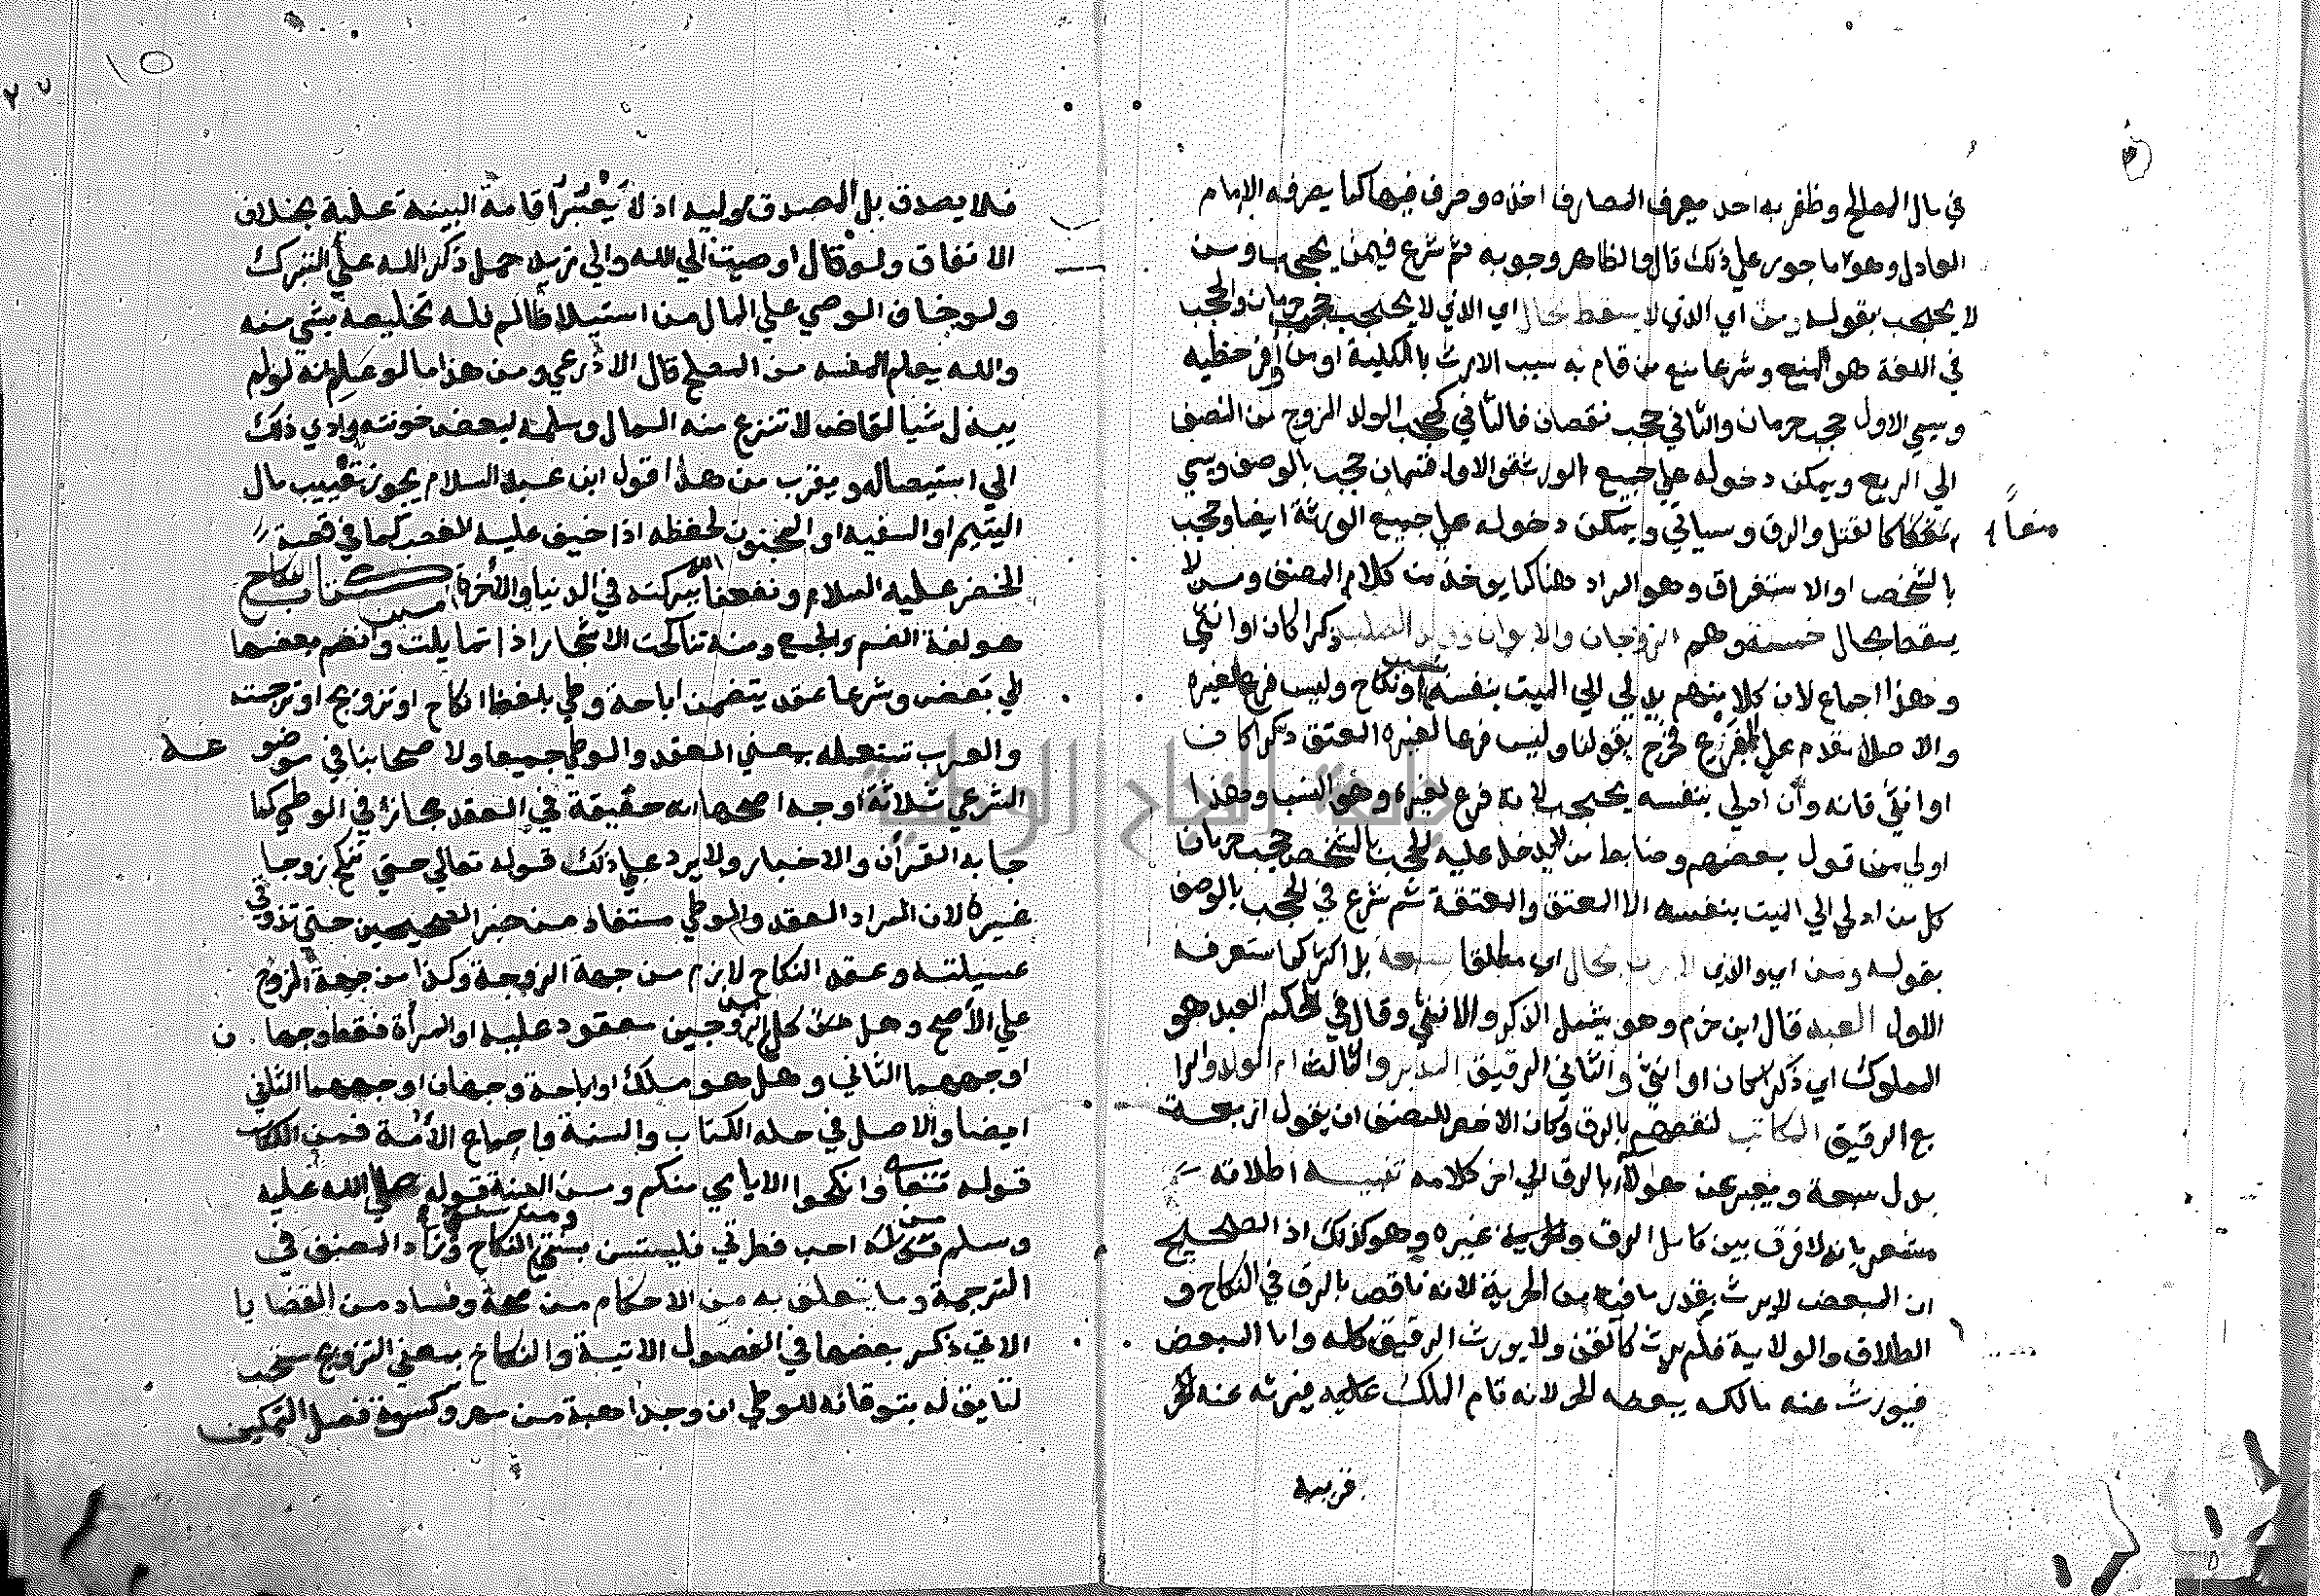 في مال المصالح وظفر به احد يعرف المصارف اخذه وصرف فيها كما يصرفه الامام
العادل وهو ماجور علي ذلك قال والظاهر وجوبه ثم شرع فيمن يحجب ومن
لا يحجب بقوله ومن اي الذي لا يسقط بحال اي الذي لا يحجب حجب حرمان والحجب
في اللغة هو المنع وشرعا منع من قام به سبب الارث بالكلية او من اوفر حظيه
وسمي الاول حجب حرمان والثاني حجب نقصان فالثاني كحجب الولد الزوج من النصف
الي الربع ويمكن دخوله علي جميع الورثة والاول قسمان حجب بالوصف ويسمي
منعا
كالقتل والرق وسياتي ويمكن دخوله علي جميع الورثة ايضا وحجب
بالشخص او الاستغراق وهو المراد هنا كما يوخذ من كلام المصنف ومن لا
يسقط بحال خمسة وهم الزوجان والابوان وولد الصلب ذكرا كان او انثي
وهذا اجماع لان كلا منهم يدلي الي الميت بنفسه او نكاح وليس فرعا لغيره
والاصل مقدم علي الفرع فخرج بقولنا وليس فرعا لغيره المعتق ذكرا كان
او انثي فانه وان ادلي بنفسه يحجب لانه فرع لغيره وهو النسب وهذا
اولي من قول بعضهم وضابط من لا يدخل عليه الحجب بالشخص حجب حرمان
كل من ادلي الي الميت بنفسه الا المعتق والمعتقة ثم شرع في الحجب بالوصف
بقوله ومن اي والذي لا يرث بحال اي مطلقا سبعة بل اكثر كما ستعرفه
الاول العبد قال ابن حزم وهو يشمل الذكر والانثي وقال في المحكم العبد هو
المملوك اي ذكرا كان او انثي والثاني الرقيق المدبر والثالث ام الولد والرا
بع الرقيق المكاتب لنقصهم بالرق وكان الاخصر للمصنف ان يقول اربعة
بدل سبعة ويعبر عن هولاء بالرق الي اخر كلامه تنبيه اطلاقه
مشعر بانه لا فرق بين كامل الرق وغيره وهو كذلك اذ الصحيح
ان المبعض لا يرث بقدر ما فيه من الحرية لانه ناقص بالرق في النكاح و
الطلاق والولاية فلم يرث كالقن ولا يورث الرقيق كله واما المبعض
فيورث عنه ما ملكه ببعضه الحر لانه تام الملك عليه فيرثه عنه
قريبه
فلا يصدق بل المصدق موليه اذ لا يعسر اقامة البينة عليه بخلاف
الانفاق ولو قال اوصيت الي الله والي زيد حمل ذكر الله علي التبرك
ولو خاف الوصي علي المال من استيلا ظالم فله تخليصه بشي منه
والله يعلم المفسد من المصلح قال الاذرعي ومن هذا ما لو علم انه لو لم
يبذل شيا لقاض لانتزع منه المال وسلمه لبعض خونته وادي ذلك
الي استيصاله ويقرب من هذا قول ابن عبد السلام يجوز تعييب مال
اليتيم او السفيه او المجنون لحفظه اذا خيف عليه الغصب كما في قصة
الخضر عليه السلام ونفعنا الله ببركته في الدنيا والاخرة امين كتاب النكاح
هو لغة الضم والجمع ومنه تناكحت الاشجار اذا تمايلت وانضم بعضها
الي بعض وشرعا عقد يتضمن اباحة وطي بلفظ انكاح او تزويج او ترجمته
والعرب تستعمله بمعني العقد والوطي جميعا ولاصحابنا في موضوعه
الشرعي ثلاثة اوجه اصحها انه حقيقة في العقد مجاز في الوطي كما
جا به القرآن والاخبار ولا يرد علي ذلك قوله تعالي حتي تنكح زوجا
غيره لان المراد العقد والوطي مستفاد من خبر الصحيحين حتي تذوقي
عسيلته وعقد النكاح لازم من جهة الزوجة وكذا من جهة الزوج
علي الاصح وهل كل من الزوجين معقود عليه او المراة فقط وجهان
اوجههما الثاني وهل هو ملك او اباحة وجهان اوجههما الثاني
ايضا والاصل في حله الكتاب والسنة واجماع الأمة فمن الكتاب
قوله تعالي وانكحوا الايامي منكم ومن السنة قوله صلي الله عليه
وسلم من احب فطرتي فليستسن بسنتي ومن سنتي النكاح وزاد المصنف في
الترجمة وما يتعلق به من الاحكام من صحة وفساد من القضايا
الاتي ذكر بعضها في الفصول الاتية والنكاح بمعني التزويج مستحب
لتايق له بتوقانه للوطي ان وجد اهبة من مهر وكسوة فصل التمكين